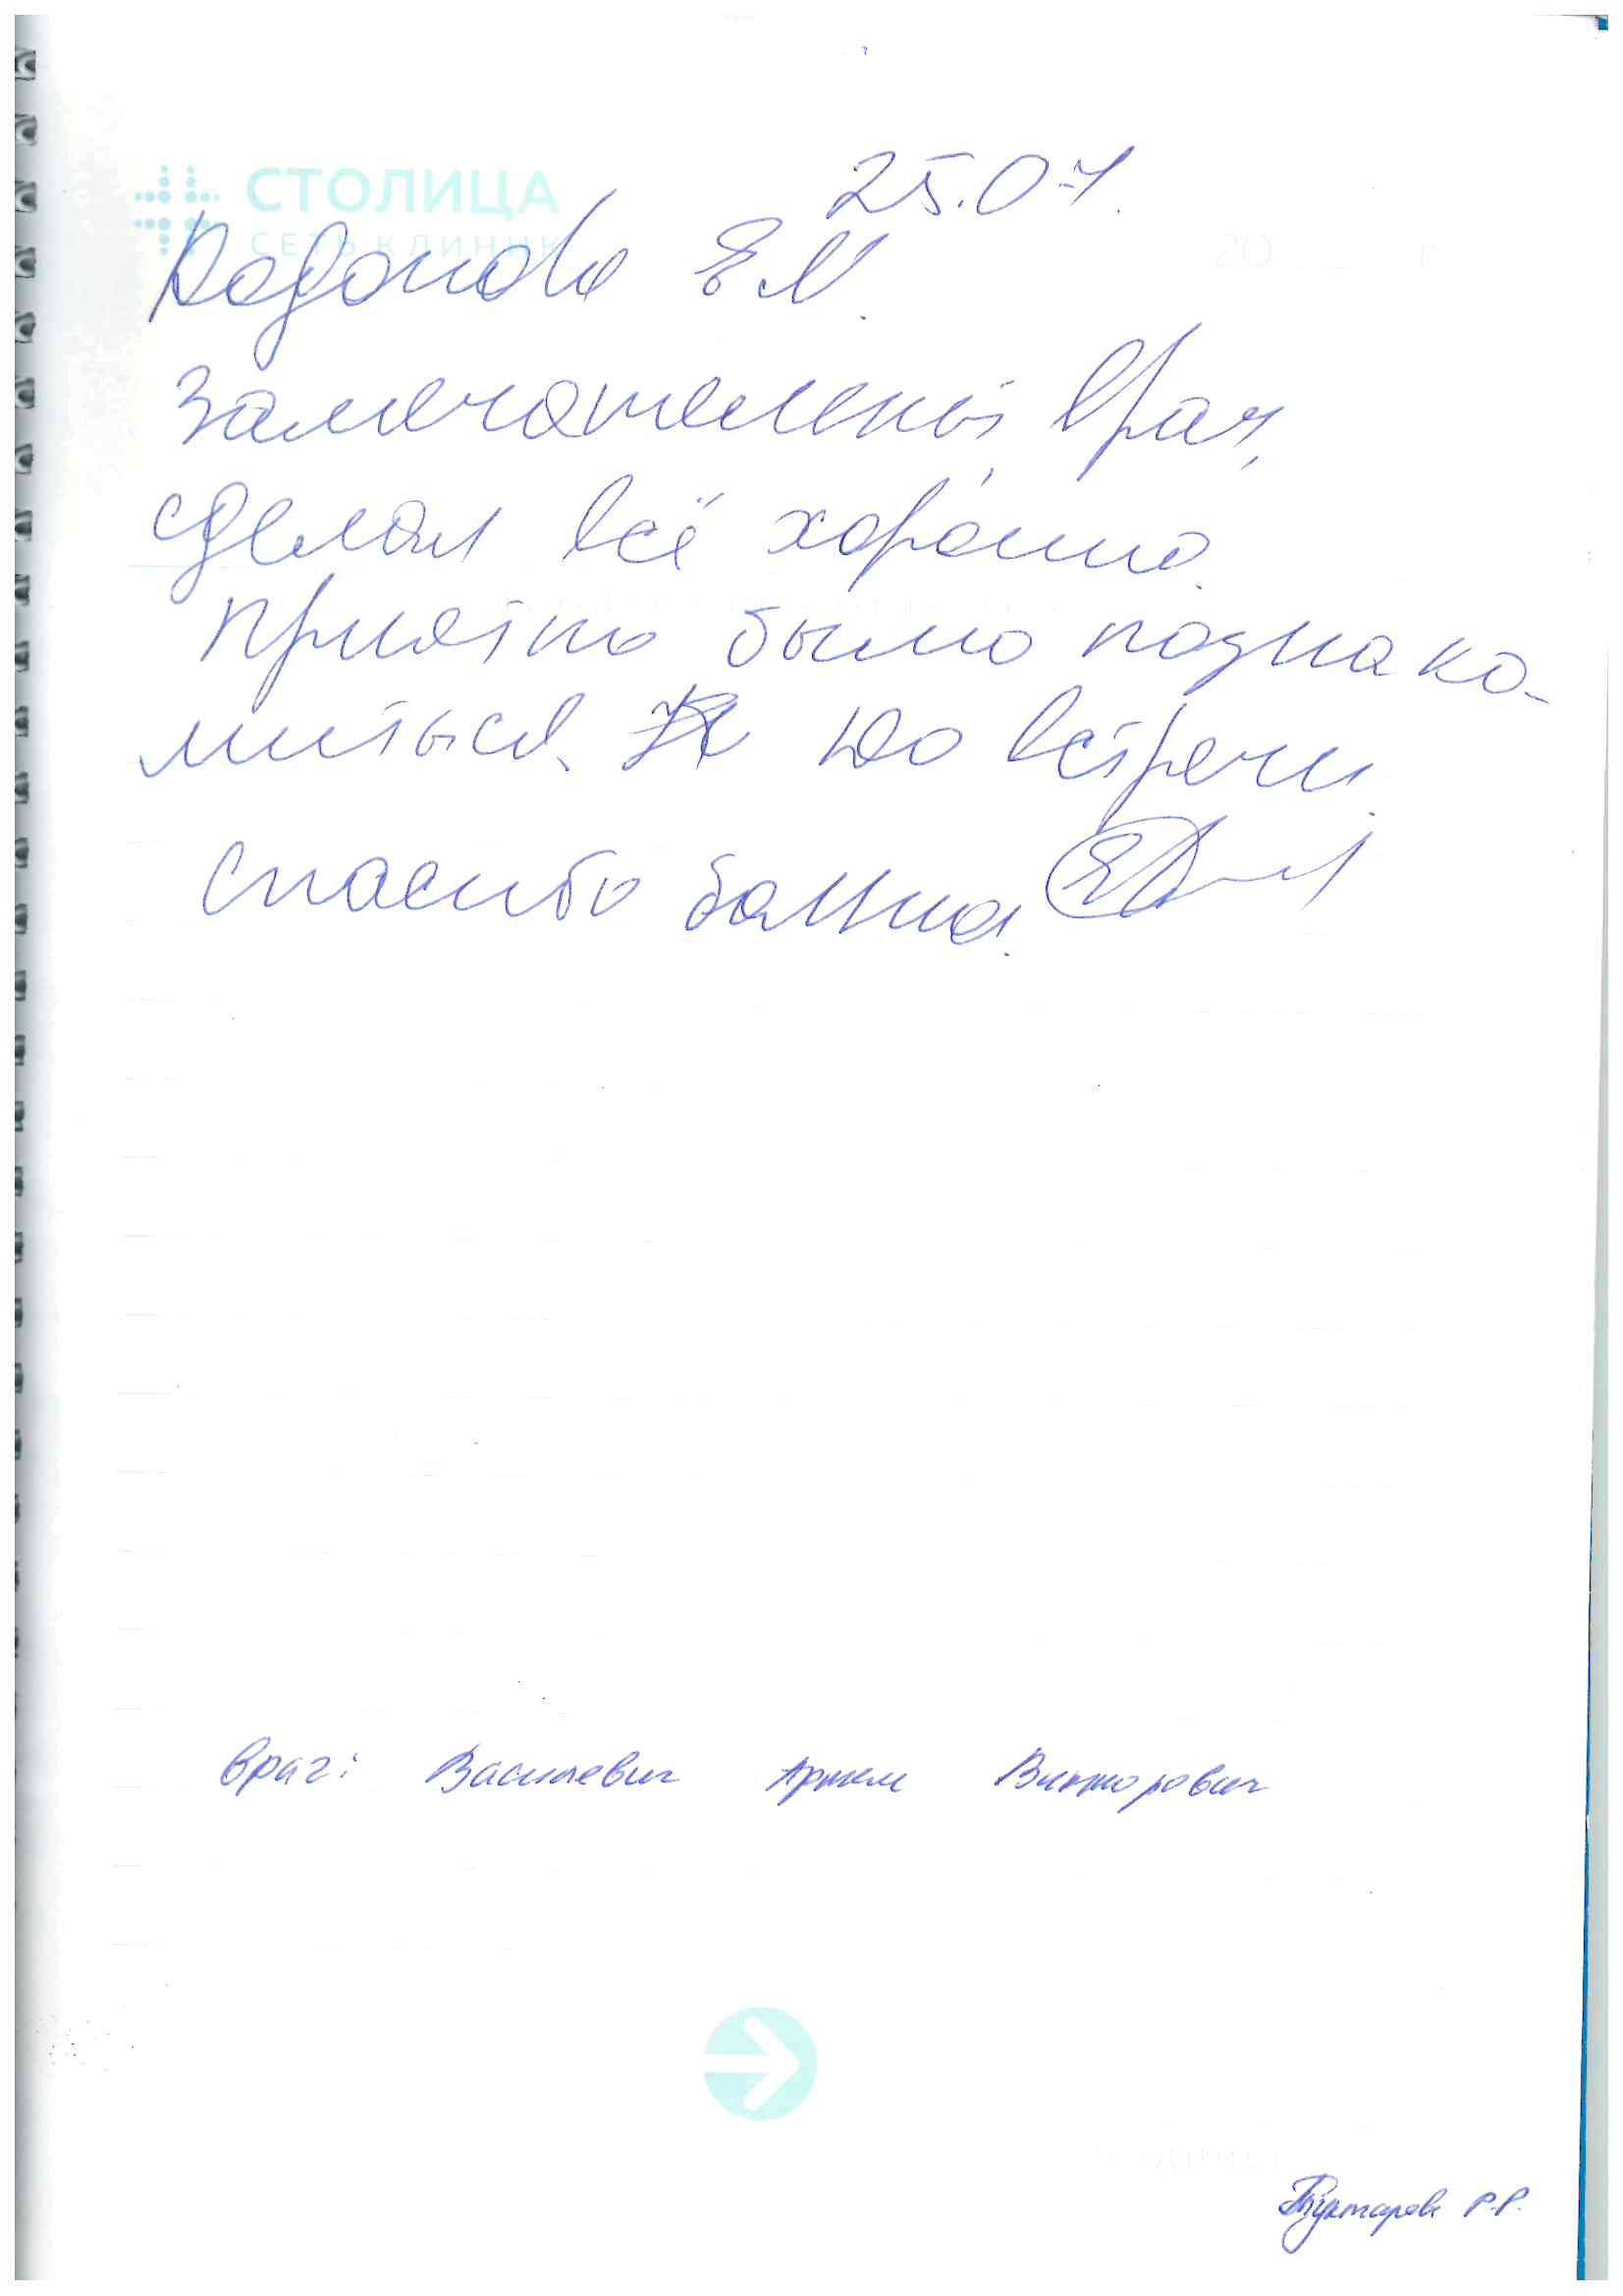 25.07.
СТОЛИЦА
СЕТЬ КЛИНИК
Е.М.
Замечательный врач,
сделал всё хорошо.
Приятно было познако-
миться. До встречи.
Спасибо большое.
Врач: Василевич Артём Викторович
Тухтарова Р.Р.